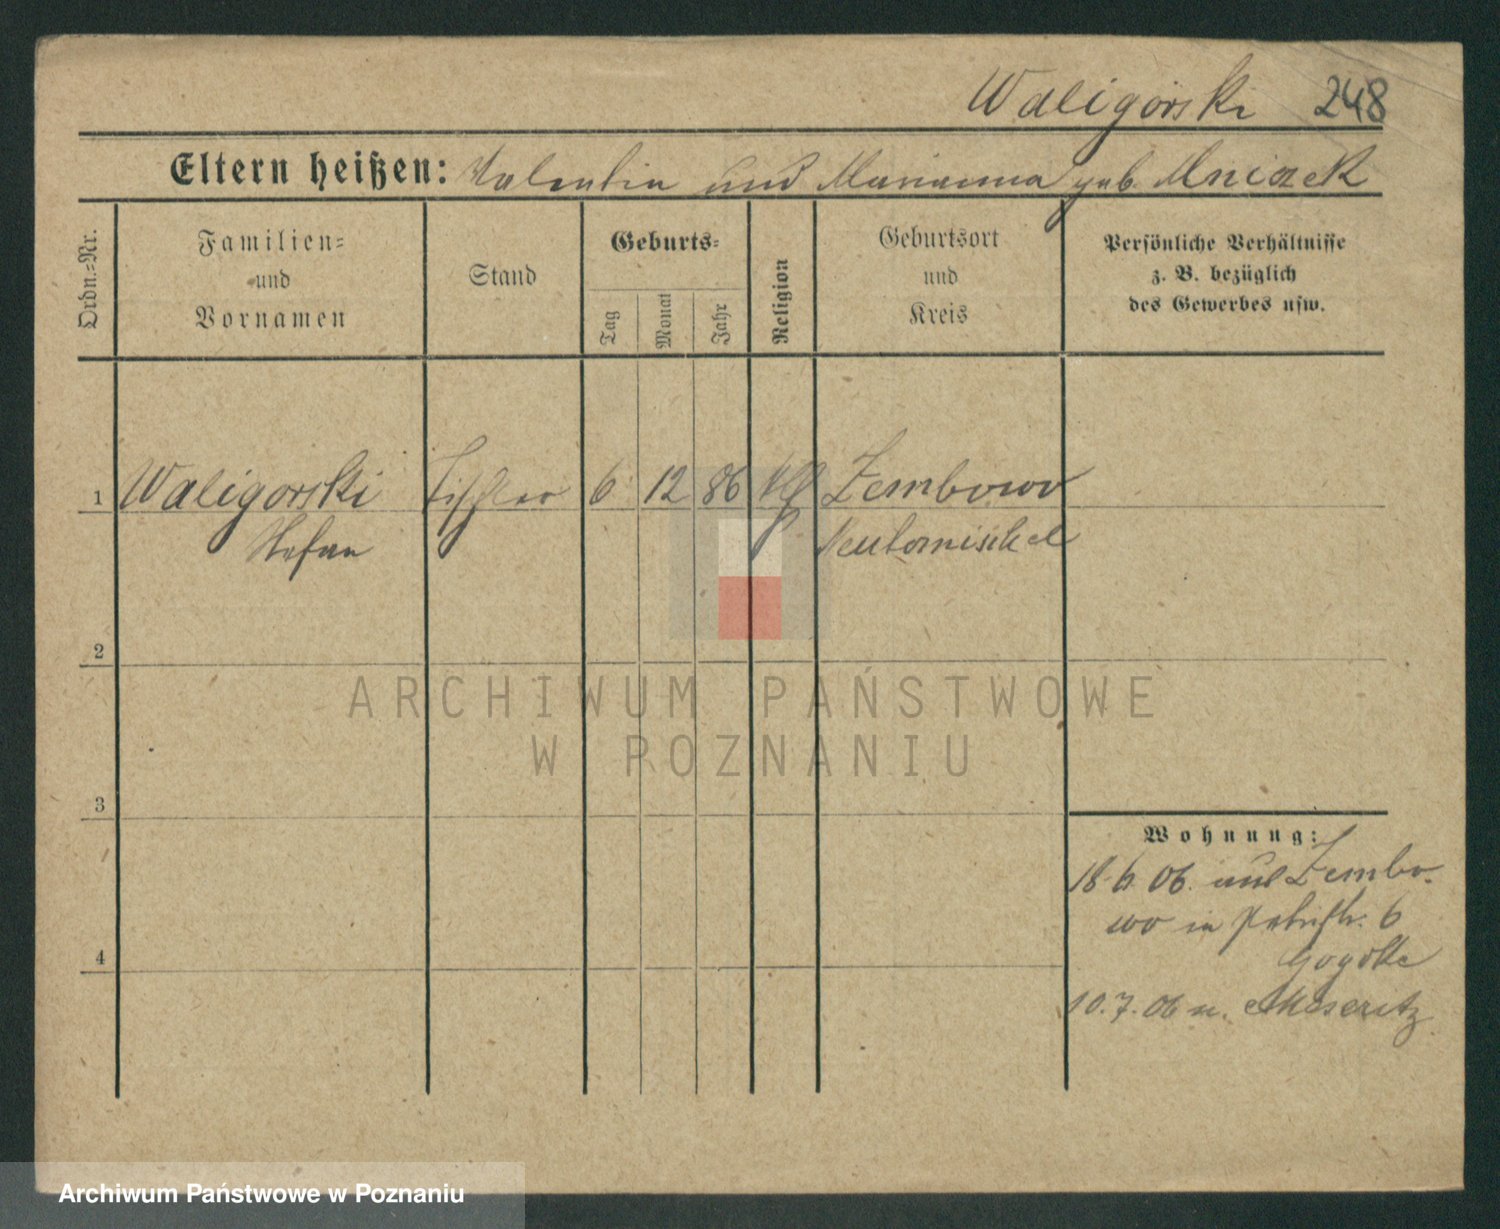 Waligorski 248
Eltern heißen: Valentin und Marianna geb. Mniczek
Ordn.=Nr.
Familien=
und
Vornamen
Stand
Geburts=
Tag
Monat
Jahr
Religion
Geburtsort
und
Kreis
Persönliche Verhältnisse
z. B. bezüglich
des Gewerbes usw.
1 Waligorski Tischler 6 12 86 kth Zembowo
Stefan Neutomischel
2
ARCHIWUM PAŃSTWOWE
W POZNANIU
3
Wohnung:
18.6.06. aus Zembo-
wo in 6
4
10.7.06 n. Meseritz
Archiwum Państwowe w Poznaniu